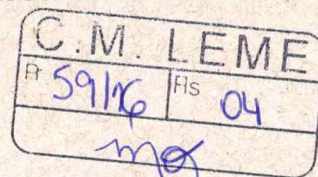 C.M. LEME
Pr 59/16 Fls 04